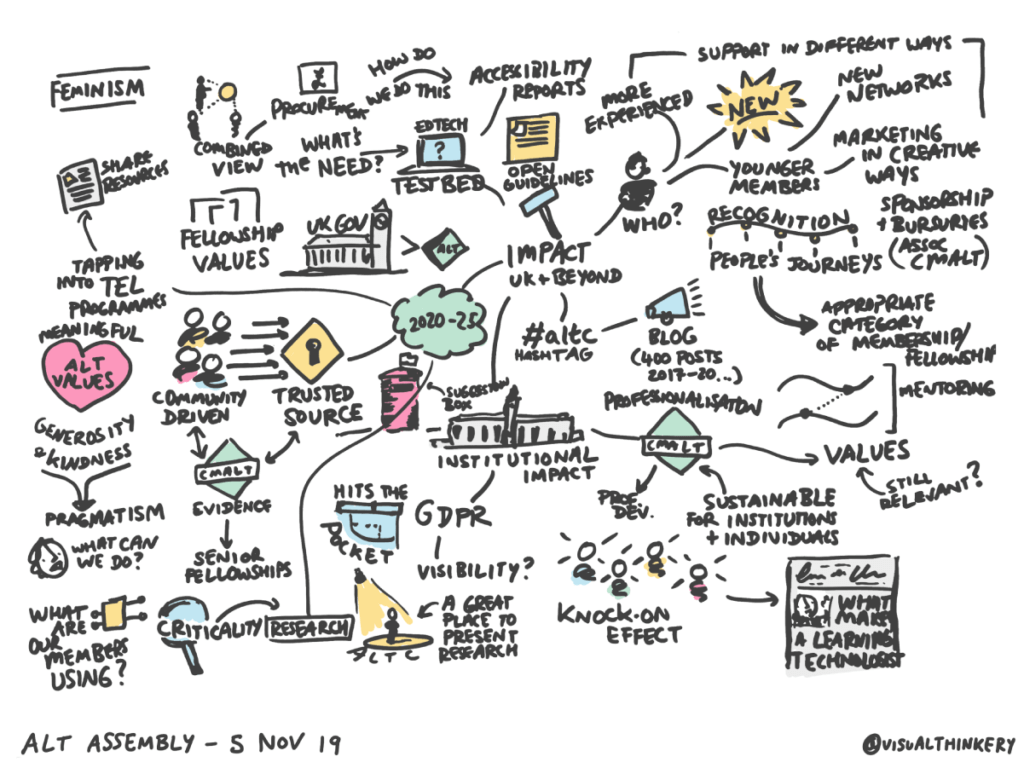 FEMINISM
SHARE
RESOURCES
TAPPING
INTO TEL
PROGRAMMES
MEANINGFUL
ALT
VALUES
GENEROSITY
& KINDNESS
PRAGMATISM
WHAT CAN
WE DO?
WHAT
ARE
OUR
MEMBERS
USING?
COMBINED
VIEW
£
PROCUREMENT
HOW DO
WE DO THIS
WHAT'S
THE NEED?
EDTECH
?
TEST BED
ACCESSIBILITY
REPORTS
OPEN
GUIDELINES
FELLOWSHIP
VALUES
UK GOV
ALT
IMPACT
UK + BEYOND
2020-25
#altc
HASHTAG
BLOG
(400 POSTS
2017-20...)
SUPPORT IN DIFFERENT WAYS
MORE
EXPERIENCED
NEW
NEW
NETWORKS
YOUNGER
MEMBERS
MARKETING
IN CREATIVE
WAYS
WHO?
RECOGNITION
PEOPLE'S JOURNEYS
SPONSORSHIP
+ BURSURIES
(ASSOC
CMALT)
APPROPRIATE
CATEGORY
OF MEMBERSHIP/
FELLOWSHIP
MENTORING
COMMUNITY
DRIVEN
TRUSTED
SOURCE
CMALT
EVIDENCE
SENIOR
FELLOWSHIPS
SUGGESTION
BOX
INSTITUTIONAL
IMPACT
PROFESSIONALISATION
CMALT
VALUES
STILL
RELEVANT?
PROF.
DEV.
SUSTAINABLE
FOR INSTITUTIONS
+ INDIVIDUALS
HITS THE
POCKET
GDPR
VISIBILITY?
CRITICALITY
RESEARCH
ALTC
A GREAT
PLACE TO
PRESENT
RESEARCH
KNOCK-ON
EFFECT
WHAT
MAKES
A LEARNING
TECHNOLOGIST
ALT ASSEMBLY - 5 NOV 19
@VISUALTHINKERY